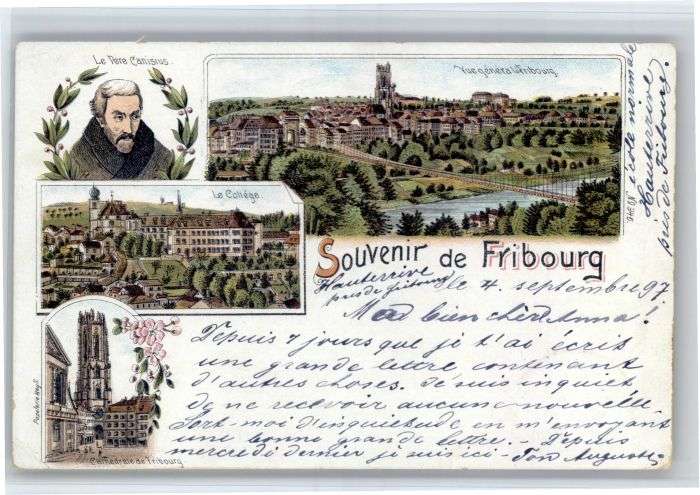 Le Père Canisius.
Vue générale Fribourg.
Le Collège.
Souvenir de Fribourg
Cathédrale de Fribourg.
école normale
Hauterive
près de Fribourg.
Hauterrive
près de Fribourg
le 4 septembre 97
Ma bien chère Anna!
Depuis 7 jours que je t'ai écrit
une grande lettre contenant
d'autres choses. Je suis inquiet
de ne recevoir aucune nouvelle
Sort-moi d'inquiétude en m'envoyant
une bonne grande lettre. - Depuis
mercredi dernier je suis ici - Ton Auguste